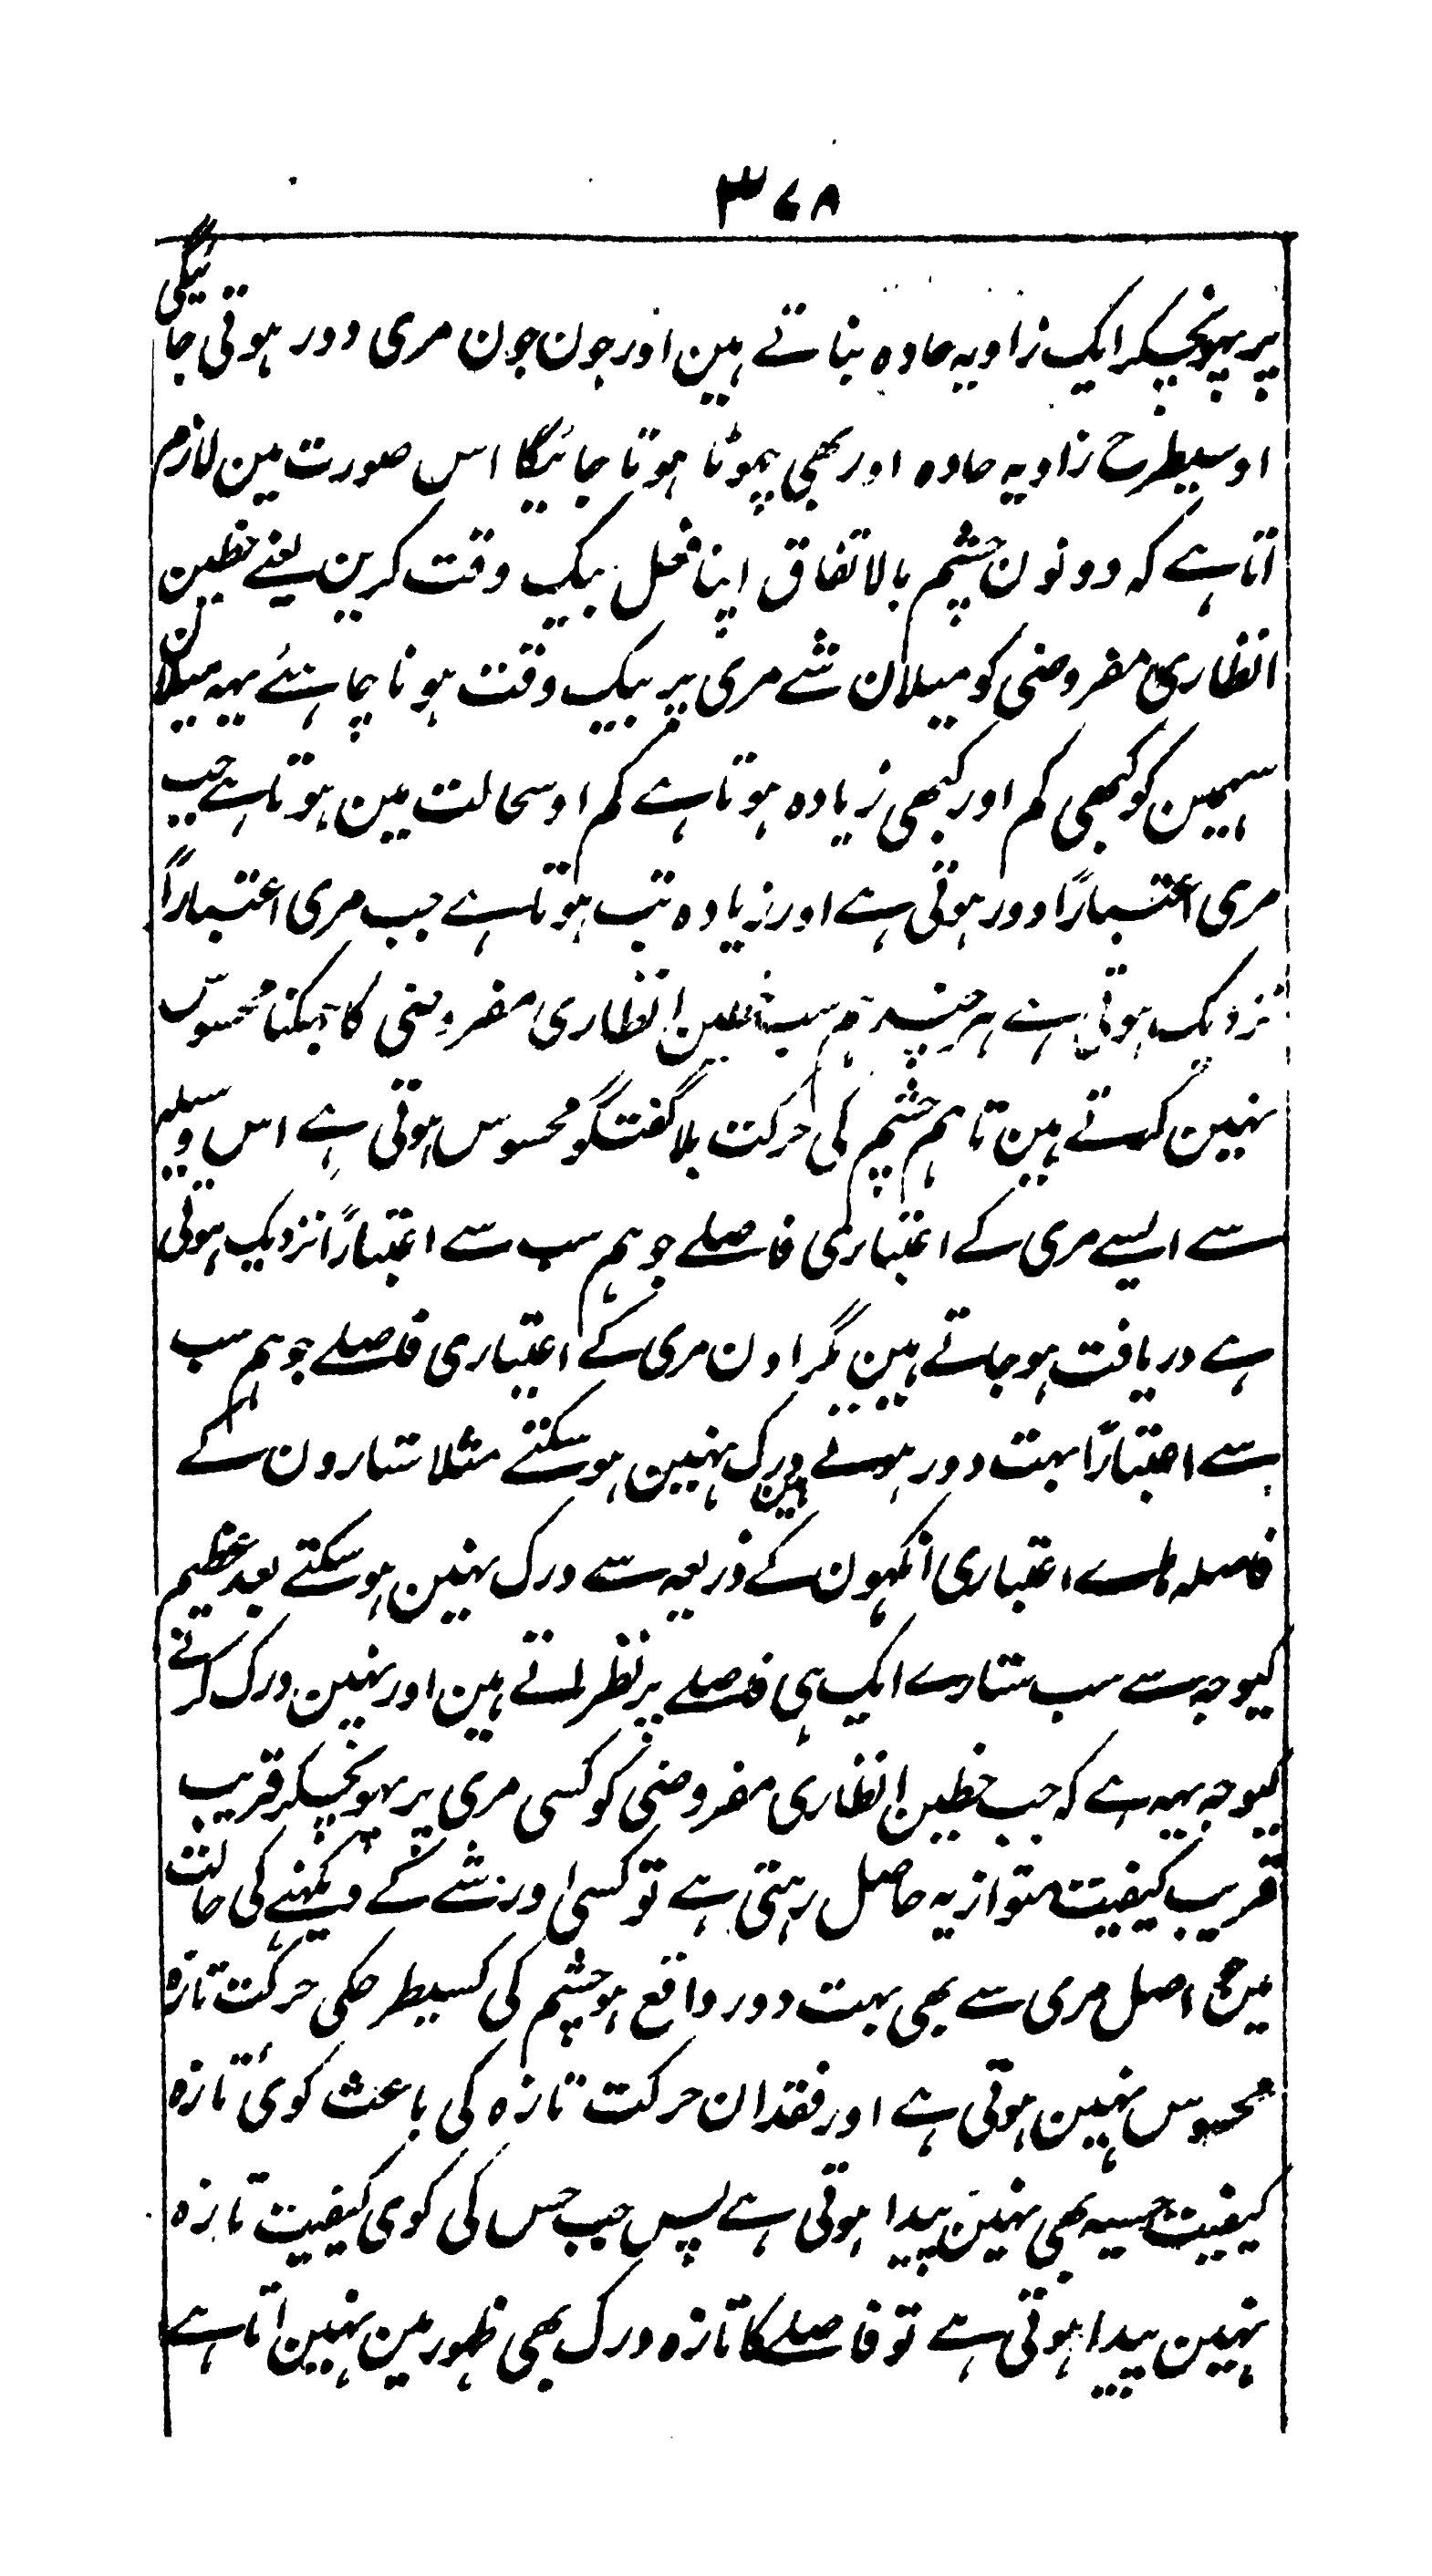 ۳۷۸
پر پہونچکر ایک زاویہ حادہ بناتے ہین اور جون جون مری دور ہوتی جائیگی
اوسیطرح زاویہ حادہ اور بھی چھوٹا ہوتا جائیگا اس صورت مین لازم
اتا ہے کہ دونون چشم بالاتفاق اپنا فعل بیک وقت کرین یعنے خطین
انظاری مفروضی کو میلان شے مری پر بیک وقت ہونا چاہئے یہہ میلان
سہمین کو کبھی کم اور کبھی زیادہ ہوتا ہے کم اوسحالت مین ہوتا ہے جب
مری اعتباراً دور ہوتی ہے اور زیادہ تب ہوتا ہے جب مری اعتباراً
نزدیک ہوتی ہے ہر چند ہم سب خطین انظاری مفروضی کا جھکنا محسوس
نہین کرتے ہین تاہم چشم کی حرکت بلا گفتگو محسوس ہوتی ہے اس وسیلہ
سے ایسے مری کے اعتباری فاصلے جو ہم سب سے اعتباراً نزدیک ہوتی
ہے دریافت ہو جاتے ہین مگر اون مری کے اعتباری فاصلے جو ہم سب
سے اعتباراً بہت دور ہوتے ہین درک نہین ہو سکتے مثلا ستارون کے
فاصلہ ہاے اعتباری انکہون کے ذریعہ سے درک نہین ہو سکتے بعد عظیم
کیوجہ سے سب ستارے ایک ہی فاصلے پر نظر اتے ہین اور نہین درک کرتے
کیوجہ یہہ ہے کہ جب خطین انظاری مفروضی کو کسی مری پر پہونچکر قریب
قریب کیفیت متوازیہ حاصل رہتی ہے تو کسی اور شے کے دیکہنے کی حالت
مین جو اصل مری سے بھی بہت دور واقع ہو چشم کی کسیطرحکی حرکت تازہ
محسوس نہین ہوتی ہے اور فقدان حرکت تازہ کی باعث کوئی تازہ
کیفیت حسیہ بھی نہین پیدا ہوتی ہے پس جب حس کی کوی کیفیت تازہ
نہین پیدا ہوتی ہے تو فاصلے کا تازہ درک بھی ظہور مین نہین اتا ہے